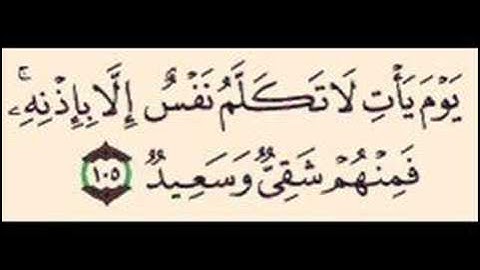 يَوْمَ يَأْتِ لَا تَكَلَّمُ نَفْسٌ إِلَّا بِإِذْنِهِۦ ۚ
فَمِنْهُمْ شَقِىٌّ وَسَعِيدٌ ١٠٥